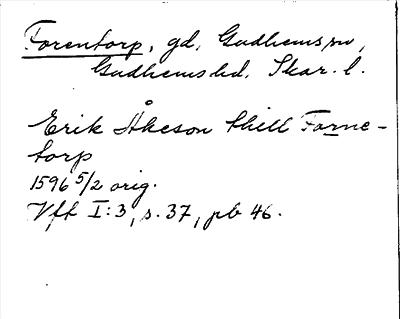 Forentorp, gd, Gudhems sn,
Gudhems hd, Skar. l.
Erik Åkeson thill Forne-
torp
1596 5/2 orig.
Vft I:3, s. 37, pb 46.